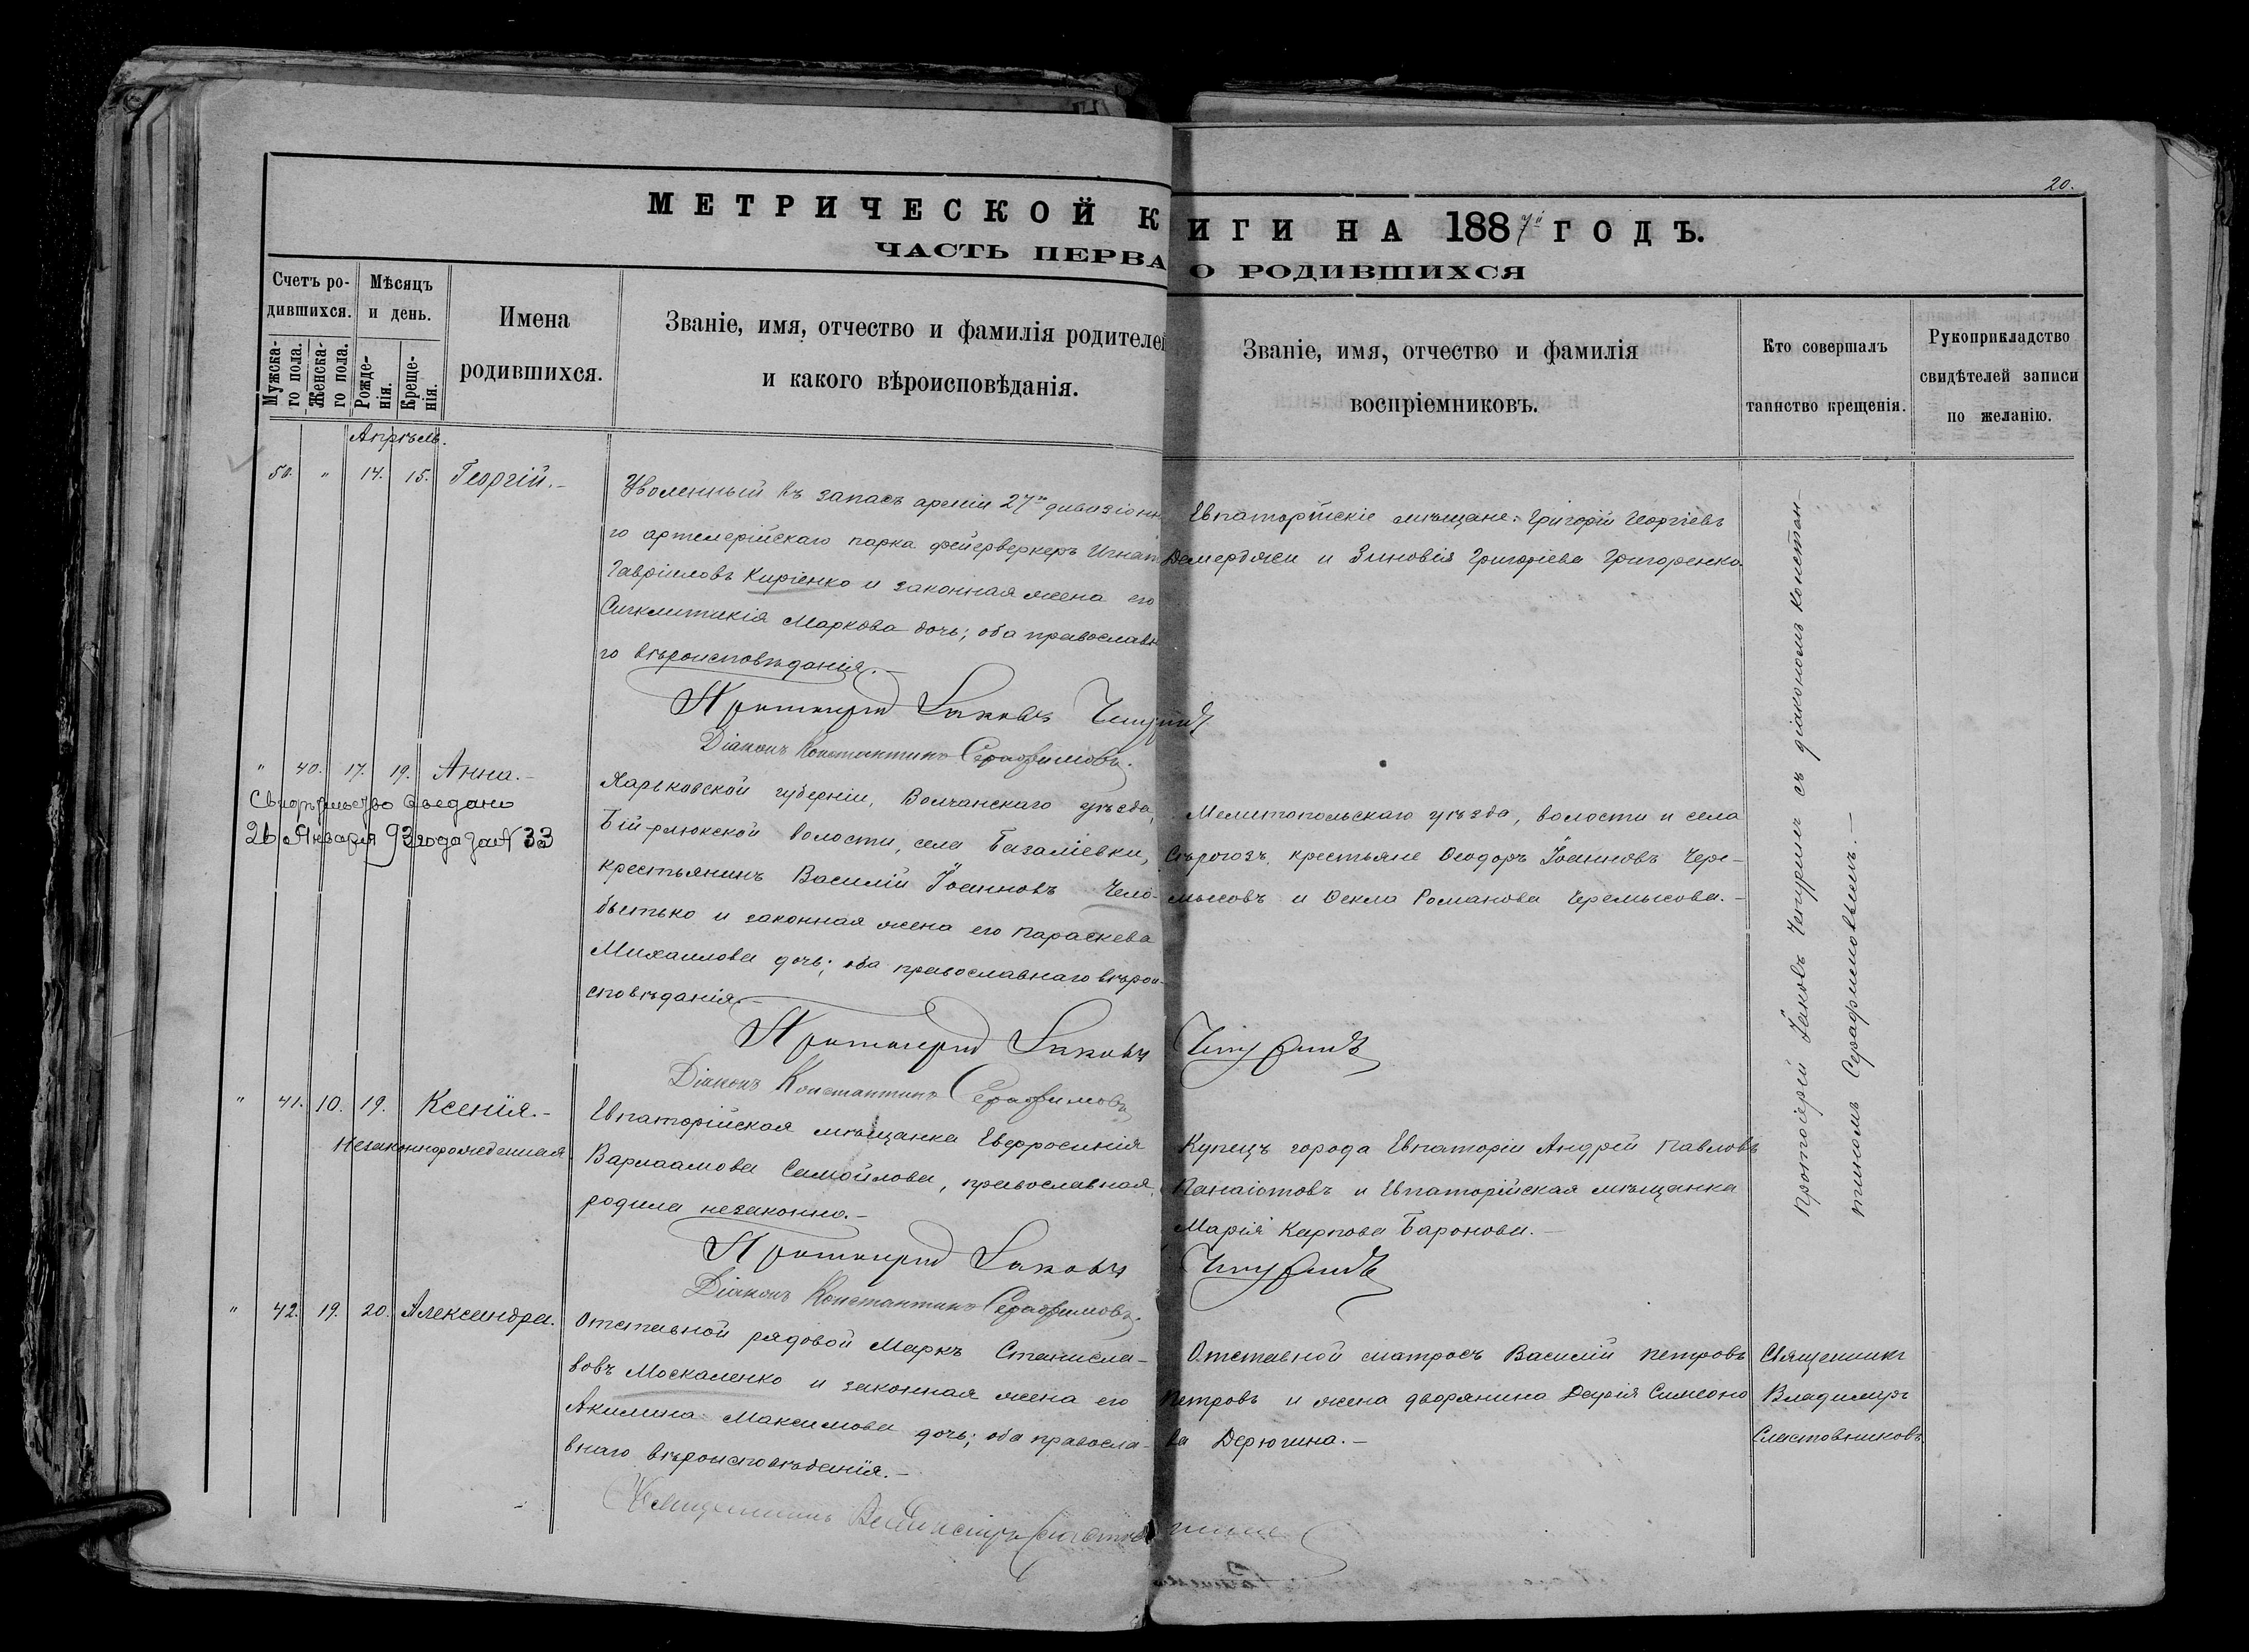 20.
МЕТРИЧЕСКОЙ КНИГИ НА 1887й ГОДЪ.
ЧАСТЬ ПЕРВА О РОДИВШИХСЯ
Счетъ ро-
дившихся.
Мужска-
го пола.
Женска-
го пола.
Мѣсяцъ
и день.
Рожде-
нія.
Креще-
нія.
Имена
родившихся.
Званіе, имя, отчество и фамилія родителей
и какого вѣроисповѣданія.
Званіе, имя, отчество и фамилія
воспріемниковъ.
Кто совершалъ
таинство крещенія.
Рукоприкладство
свидѣтелей записи
по желанію.
Апрѣль.
50. " 14. 15. Георгій.-
Уволенный въ запасъ арміи 27го дивизіонн
го артилерійскаго парка фейерверкеръ Игнат
Гавріиловъ Киріенко и законная жена его
Сигклитикія Маркова дочь; оба православн
го вѣроисповѣданія.-
Евпаторійскіе мѣщане: Григорій Георгіевъ
Демерджи и Зиновія Григоріева Григоренко.
Протоіерей Іаковъ Чепуринъ
Діаконъ Константинъ Серафимовъ.
" 40. 17. 19. Анна.-
Свидѣтельство выдано
26 Января 93 года за № 33
Харьковской губерніи, Волчанскаго уѣзда,
волости, села Базаліевки,
крестьянинъ Василій Іоанновъ Чело-
битько и законная жена его Параскева
Михаилова дочь; оба православнаго вѣрои-
сповѣданія.-
Мелитопольскаго уѣзда, волости и села
Сѣрогозъ, крестьяне Ѳеодоръ Іоанновъ Чере-
мысовъ и Ѳекла Романова Черемысова.-
Протоіерей Іаковъ Чепуринъ
Діаконъ Константинъ Серафимовъ
" 41. 10. 19. Ксенія.-
Незаконнорожденная
Евпаторійская мѣщанка Евфросинія
Варлаамова Самойлова, православная,
родила незаконно.-
Купецъ города Евпаторіи Андрей Павловъ
Панаіотовъ и Евпаторійская мѣщанка
Марія Карпова Баронова.-
Протоіерей Іаковъ Чепуринъ
Діаконъ Константинъ Серафимовъ.
" 42. 19. 20. Александра.
Отставной рядовой Маркъ Станисла-
вовъ Москаленко и законная жена его
Акилина Максимова дочь; оба правосла-
внаго вѣроисповѣданія.-
Отставной матросъ Василій Петровъ
Петровъ и жена дворянина Дарія Симеоно
ва Дерюгина.-
Священникъ
Владимиръ
Сластовниковъ
Священникъ
Протоіерей Іаковъ Чепуринъ съ діакономъ Констан-
тиномъ Серафимовымъ.-